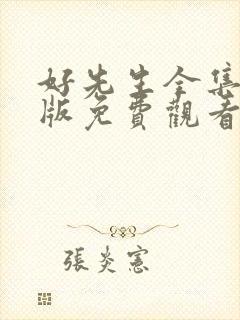 好先生全集
版免費觀看
張炎憲